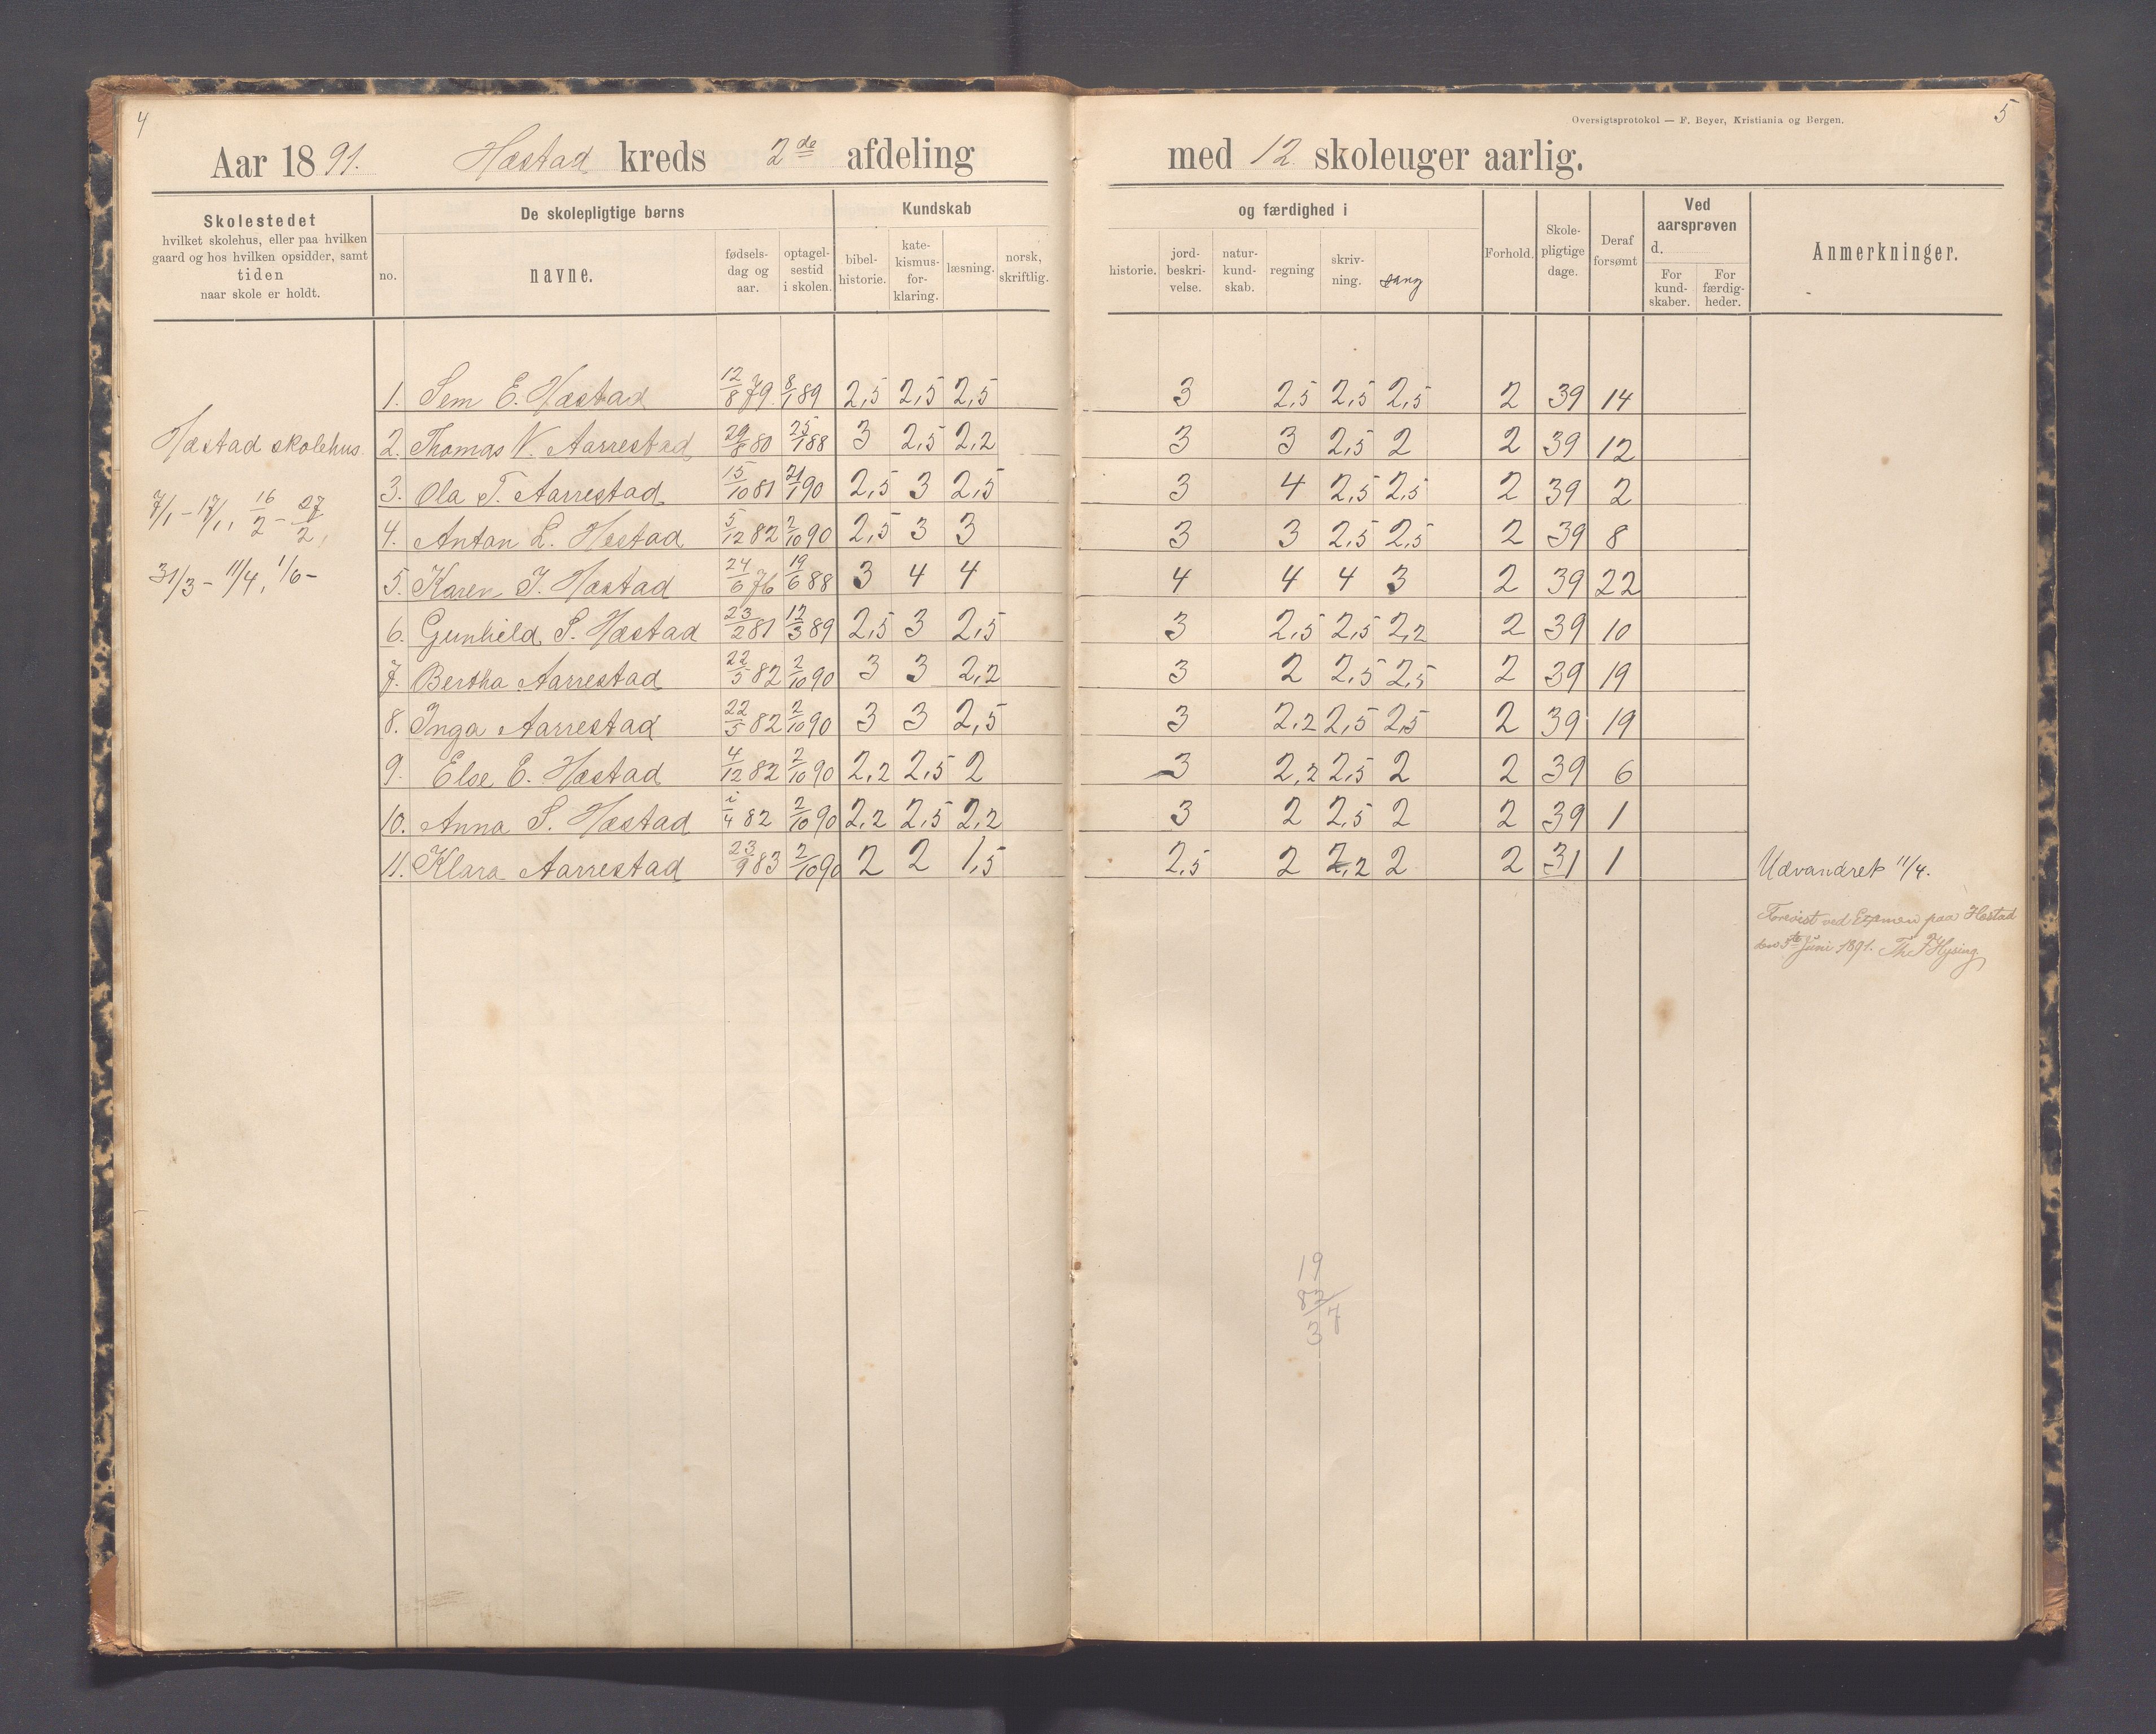 4
Aar 1891. Hæstad kreds 2de afdeling
Skolestedet
hvilket skolehus, eller paa hvilken
gaard og hos hvilken opsidder, samt
tiden
naar skole er holdt.
De skolepligtige børns
no.
navne.
fødsels-
dag og
aar.
optagel-
sestid
i skolen.
Kundskab
bibel-
historie.
kate-
kismus-
for-
klaring.
læsning.
norsk,
skriftlig.
Hæstad skolehus.
7/1 - 17/1, 16/2 - 27/2,
31/3 - 11/4, 1/6 -
1. Sem E. Hæstad 12/8 79 8/1 89 2,5 2,5 2,5
2. Thomas V. Aarrestad 29/8 80 25/1 88 3 2,5 2,2
3. Ola T. Aarrestad 15/10 81 21/1 90 2,5 3 2,5
4. Anton L. Hestad 5/12 82 2/10 90 2,5 3 3
5. Karen J. Hæstad 24/6 76 19/6 88 3 4 4
6. Gunhild S. Hæstad 23/2 81 12/3 89 2,5 3 2,5
7. Bertha Aarrestad 22/5 82 2/10 90 3 3 2,2
8. Inga Aarrestad 22/5 82 2/10 90 3 3 2,5
9. Else E. Hæstad 4/12 82 2/10 90 2,2 2,5 2
10. Anna S. Hæstad 1/4 82 2/10 90 2,2 2,5 2,2
11. Klara Aarrestad 23/9 83 2/10 90 2 2 1,5
Oversigtsprotokol — F. Beyer, Kristiania og Bergen.
5
med 12 skoleuger aarlig.
og færdighed i
historie.
jord-
beskri-
velse.
natur-
kund-
skab.
regning
skriv-
ning.
sang
Forhold.
Skole-
pligtige
dage.
Deraf
forsømt
Ved
aarsprøven
d.
For
kund-
skaber.
For
færdig-
heder.
Anmerkninger.
3 2,5 2,5 2,5 2 39 14
3 3 2,5 2 2 39 12
3 4 2,5 2,5 2 39 2
3 3 2,5 2,5 2 39 8
4 4 4 3 2 39 22
3 2,5 2,5 2,2 2 39 10
3 2 2,5 2,5 2 39 19
3 2,2 2,5 2,5 2 39 19
3 2,2 2,5 2 2 39 6
3 2 2,5 2 2 39 1
2,5 2 2,2 2 2 31 1 Udvandret 11/4.
Forevist ved Examen paa Hestad
den 5te Juni 1891. Th. F Hysing
19
82/7
3